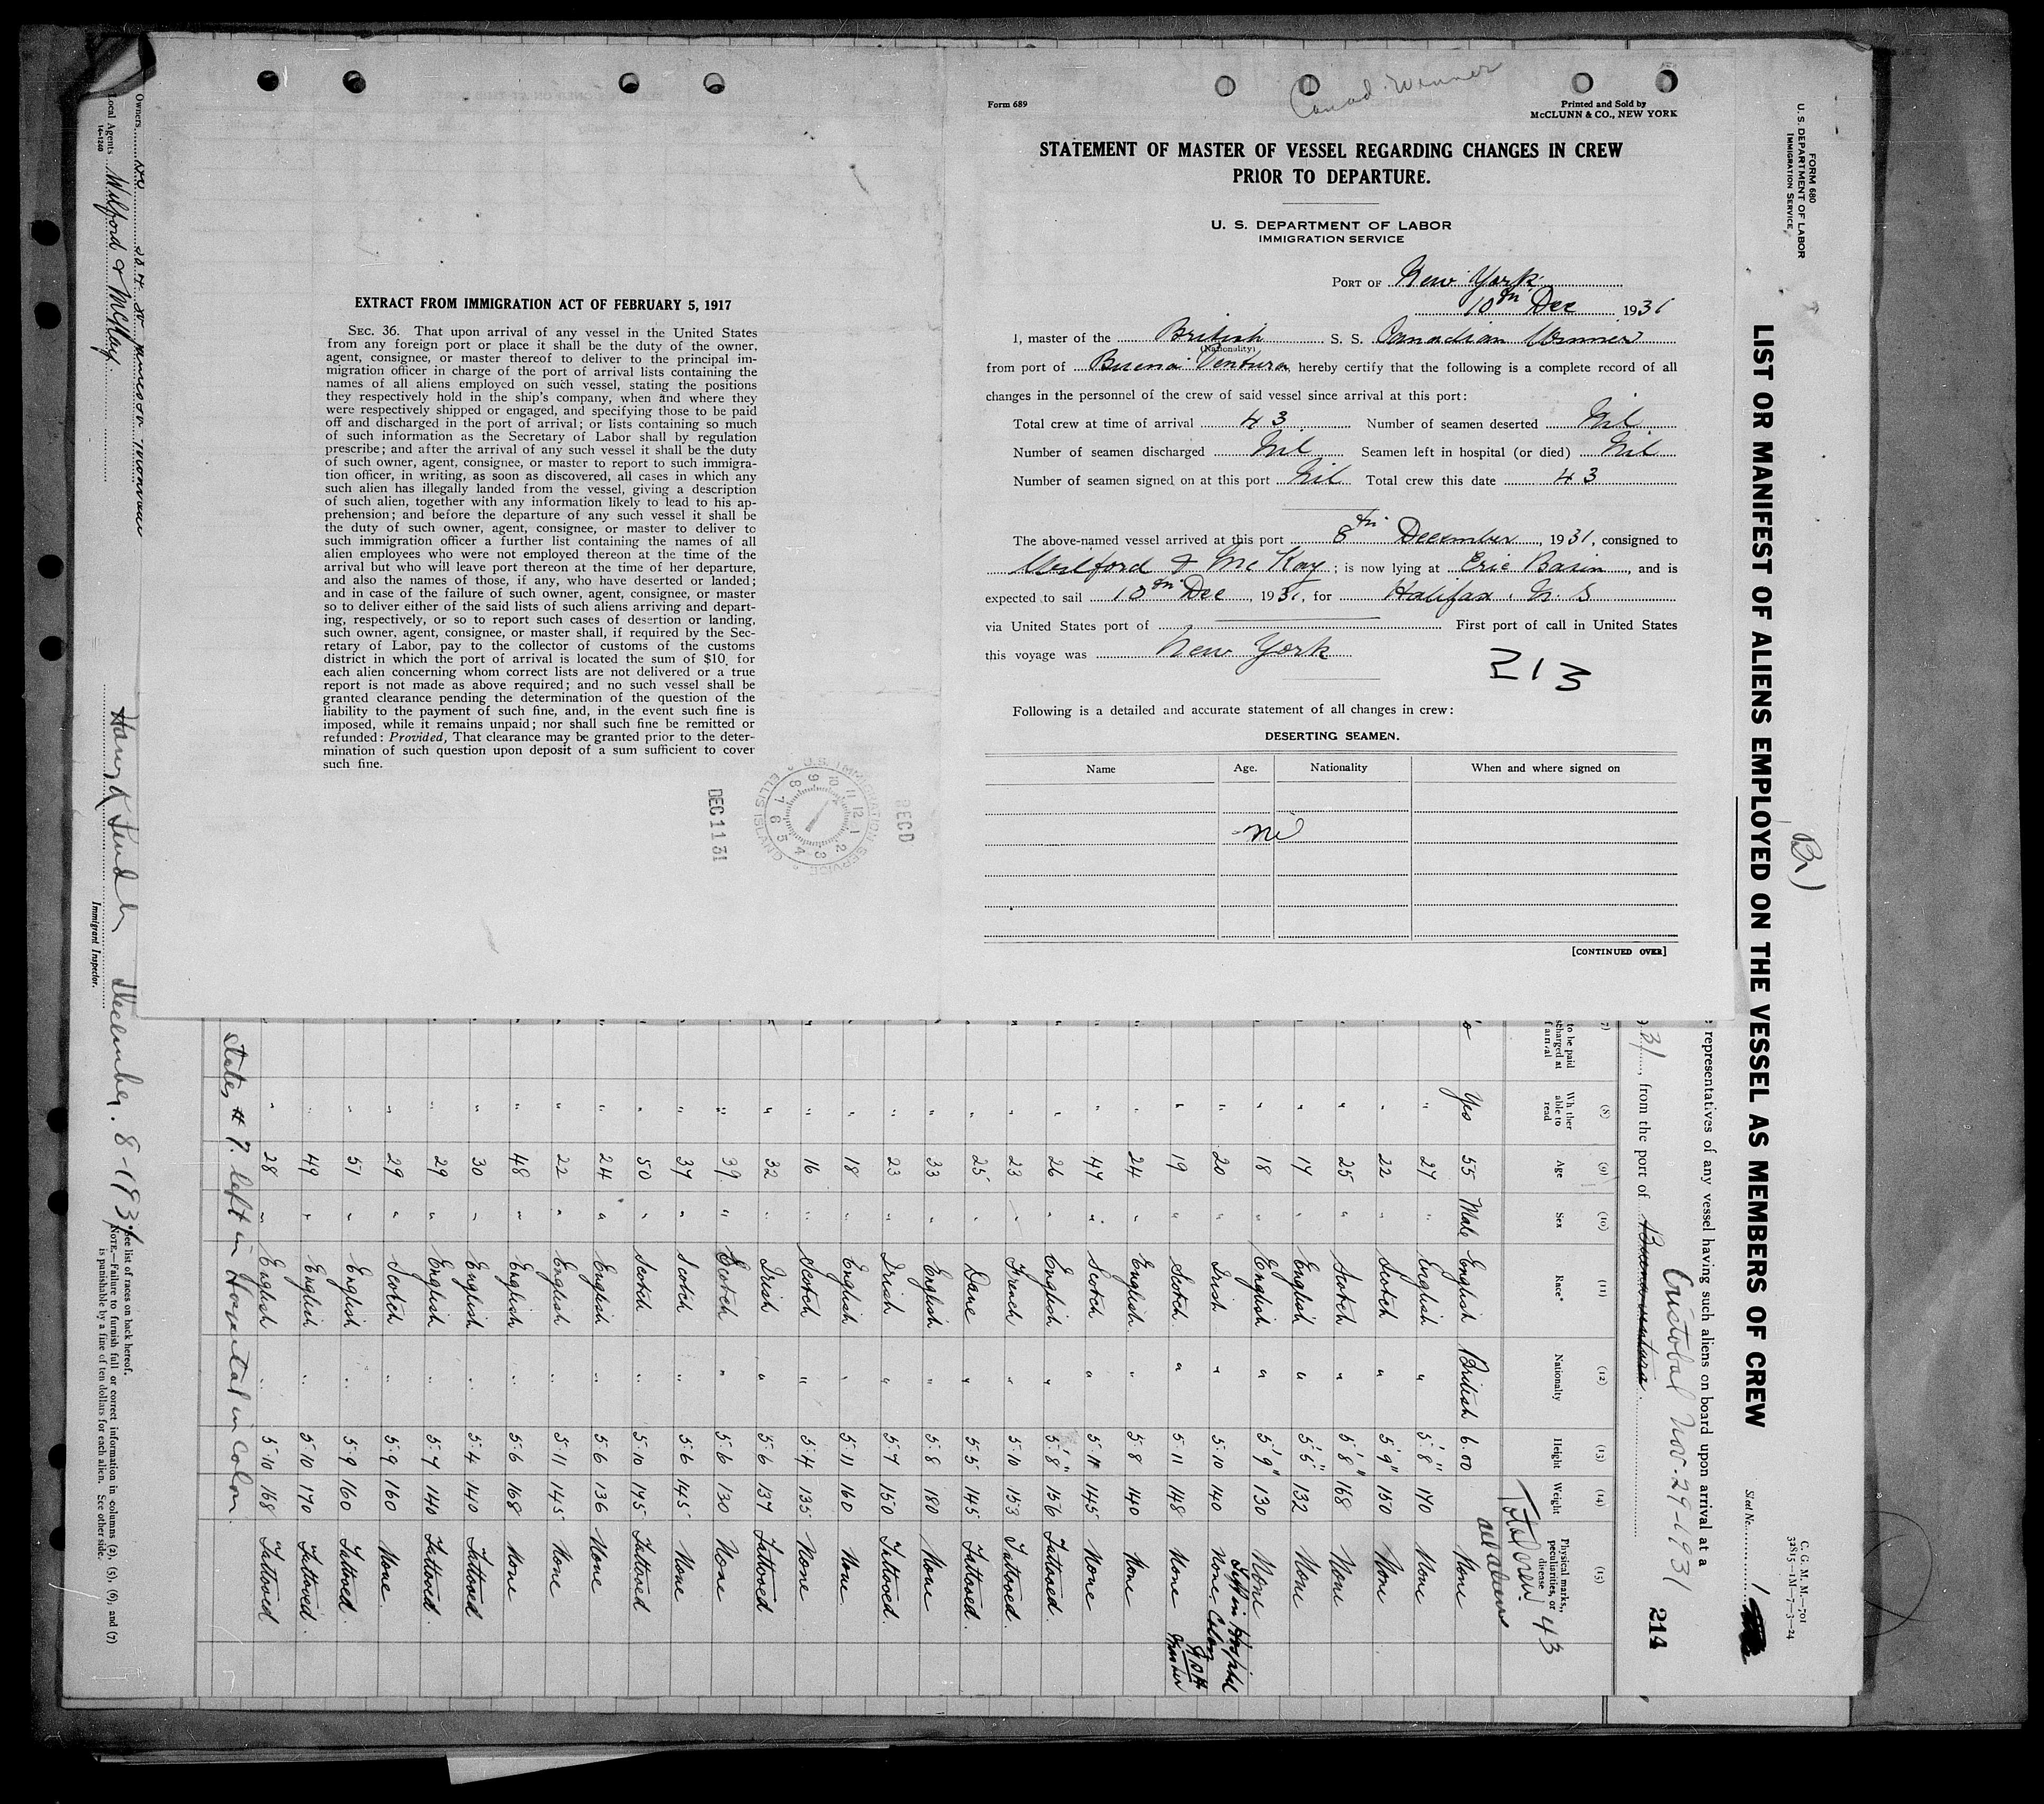 Canad. Winner
Form 689
Printed and Sold by
McCLUNN & CO., NEW YORK
STATEMENT OF MASTER OF VESSEL REGARDING CHANGES IN CREW
PRIOR TO DEPARTURE.
U. S. DEPARTMENT OF LABOR
IMMIGRATION SERVICE
PORT OF New York
10th Dec 1931
I, master of the British S. S. Canadian Winner
(Nationality)
from port of Buena Ventura, hereby certify that the following is a complete record of all
changes in the personnel of the crew of said vessel since arrival at this port:
Total crew at time of arrival 43 Number of seamen deserted Nil
Number of seamen discharged Nil Seamen left in hospital (or died) Nil
Number of seamen signed on at this port Nil Total crew this date 43
The above-named vessel arrived at this port 8th December, 1931, consigned to
Wilford & McKay; is now lying at Erie Basin, and is
expected to sail 10th Dec, 1931, for Halifax. N. S
via United States port of First port of call in United States
this voyage was New York
213
Following is a detailed and accurate statement of all changes in crew:
DESERTING SEAMEN.
Name Age. Nationality When and where signed on
[CONTINUED OVER]
EXTRACT FROM IMMIGRATION ACT OF FEBRUARY 5, 1917
SEC. 36. That upon arrival of any vessel in the United States
from any foreign port or place it shall be the duty of the owner,
agent, consignee, or master thereof to deliver to the principal im-
migration officer in charge of the port of arrival lists containing the
names of all aliens employed on such vessel, stating the positions
they respectively hold in the ship's company, when and where they
were respectively shipped or engaged, and specifying those to be paid
off and discharged in the port of arrival; or lists containing so much
of such information as the Secretary of Labor shall by regulation
prescribe; and after the arrival of any such vessel it shall be the duty
of such owner, agent, consignee, or master to report to such immigra-
tion officer, in writing, as soon as discovered, all cases in which any
such alien has illegally landed from the vessel, giving a description
of such alien, together with any information likely to lead to his ap-
prehension; and before the departure of any such vessel it shall be
the duty of such owner, agent, consignee, or master to deliver to
such immigration officer a further list containing the names of all
alien employees who were not employed thereon at the time of the
arrival but who will leave port thereon at the time of her departure,
and also the names of those, if any, who have deserted or landed;
and in case of the failure of such owner, agent, consignee, or master
so to deliver either of the said lists of such aliens arriving and depart-
ing, respectively, or so to report such cases of desertion or landing,
such owner, agent, consignee, or master shall, if required by the Sec-
retary of Labor, pay to the collector of customs of the customs
district in which the port of arrival is located the sum of $10 for
each alien concerning whom correct lists are not delivered or a true
report is not made as above required; and no such vessel shall be
granted clearance pending the determination of the question of the
liability to the payment of such fine, and, in the event such fine is
imposed, while it remains unpaid; nor shall such fine be remitted or
refunded: Provided, That clearance may be granted prior to the deter-
mination of such question upon deposit of a sum sufficient to cover
such fine.
RECD
U.S. IMMIGRATION SERVICE ELLIS ISLAND NY
DEC 11 31
FORM 680
U. S. DEPARTMENT OF LABOR
IMMIGRATION SERVICE
(Br)
C. G. M. M.—701
32815—1M—7—3—24
LIST OR MANIFEST OF ALIENS EMPLOYED ON THE VESSEL AS MEMBERS OF CREW
Sheet No. 1
representatives of any vessel having such aliens on board upon arrival at a
Cristobal Nov-29-1931
31, from the port of Buena ventura
214
(7) (8) (9) (10) (11) (12) (13) (14) (15)
to be paid
able to read Age Sex Race* Nationalty Height Weight Physical marks, peculiarities, or disease
Total crew 43
all aliens
Yes 55 Male English British 6.00 None
" 27 " English " 5'8" 170 None
" 22 " Scotch " 5'9" 150 None
" 25 " Scotch " 5'8" 168 None
" 17 " English " 5'5" 132 None
" 18 " English " 5'9" 130 None
Left in Hospital
" 20 " Irish " 5.10 140 None Colon
" 19 " Scotch " 5.11 148 None
Master
" 24 " English " 5.8 140 None
" 47 " Scotch " 5.11 145 None
" 26 " English " 5'8" 156 Tattooed.
" 23 " French " 5.10 153 Tattooed.
" 25 " Dane " 5.5 145 Tattooed.
" 33 " English " 5.8 180 None
" 23 " Irish " 5.7 150 Tattooed.
" 18 " English " 5.11 160 None
" 16 " Scotch " 5.4 135 None
" 32 " Irish " 5.6 137 Tattooed
" 39 " Scotch " 5.6 130 None
" 37 " Scotch " 5.6 145 None
" 50 " Scotch " 5.10 175 Tattooed
" 24 " English " 5.6 136 None
" 22 " English " 5.11 145 None
" 48 " English " 5.6 168 None
" 30 " English " 5.4 140 Tattooed
" 29 " English " 5.7 140 Tattooed.
" 29 " Scotch " 5.9 160 None.
" 51 " English " 5.9 160 Tattooed.
" 49 " English " 5.10 170 Tattooed.
" 28 " English " 5.10 168 Tattooed
States # 7. left in Hospital in Colon.
Owners
Local Agents Wilford & McKay.
14-1240
December. 8-1931
Immigrant Inspector.
*See list of races on back hereof.
NOTE.—Failure to furnish full or correct information in columns (2), (5), (6), and (7)
is punishable by a fine of ten dollars for each alien. See other side.